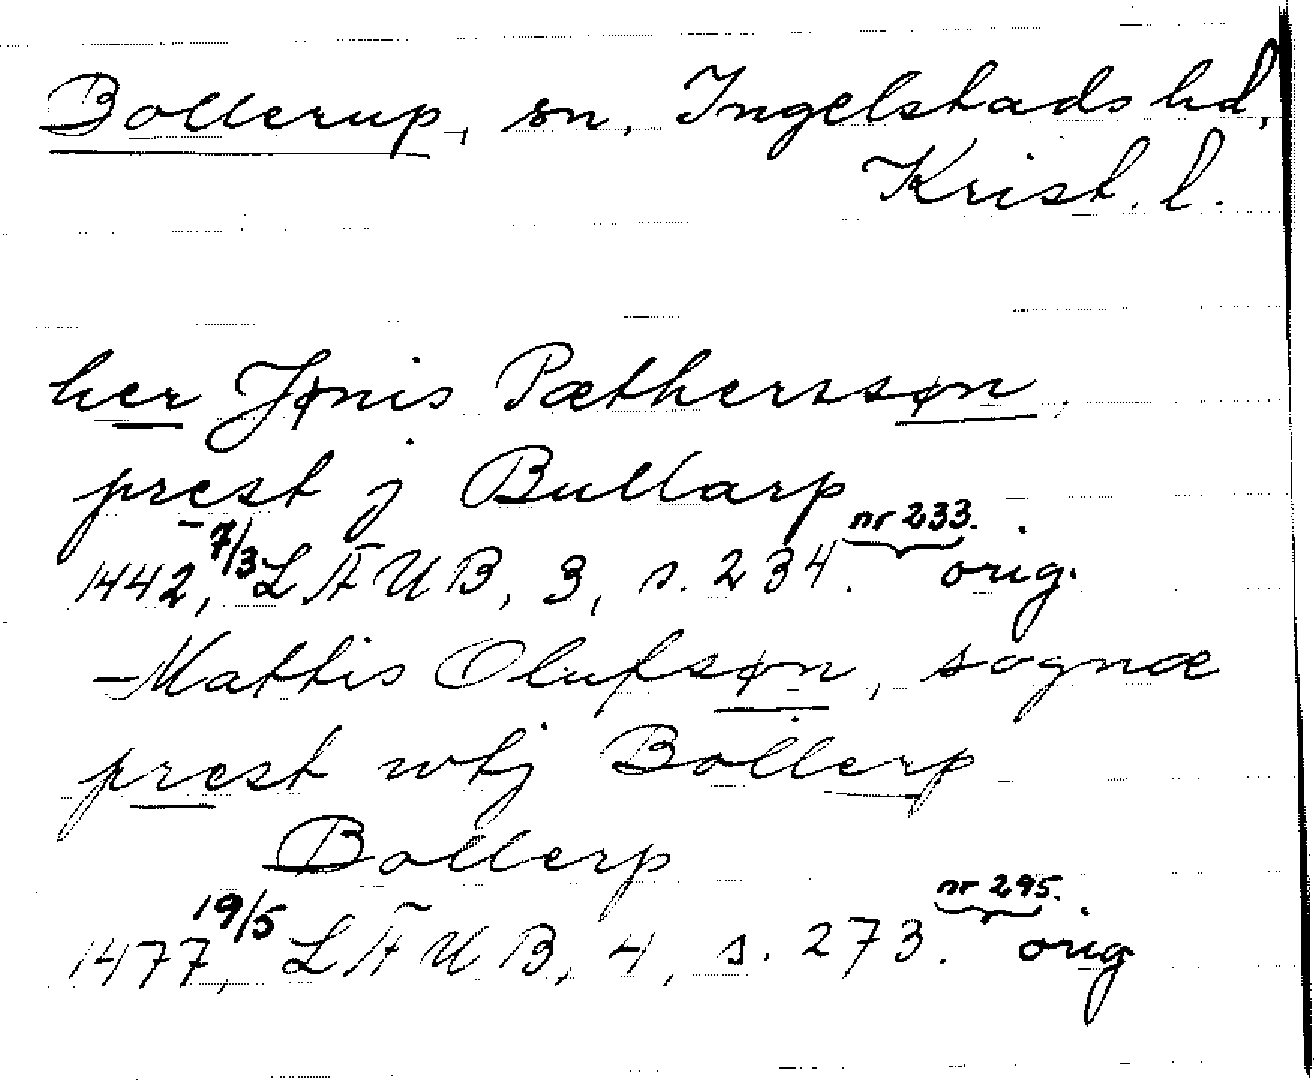 Bollerup, sn, Ingelstads hd,
Krist. l.
her Jønis Pætherssøn,
prest j Bullarp
1442, 7/3 LÄUB, 3, s. 234. nr 233. orig.
- Mattis Olufsøn, sognæ
prest wtj Bollerp
Bollerp
1477, 19/5 LÄUB, 4, s. 273. nr 295. orig